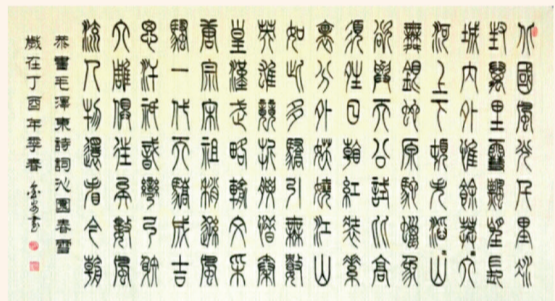 北國風光千里冰
封萬里雪飄望長
城內外惟餘莽〻大
河上下頓失滔〻山
舞銀蛇原馳蠟象
欲與天公試比高
須晴日看紅裝素
裹分外妖嬈江山
如此多嬌引無數
英雄競折腰惜秦
皇漢武略輸文采
唐宗宋祖稍遜風
騷一代天驕成吉
思汗祇識彎弓射
大雕俱往矣數風
流人物還看今朝
恭書毛澤東詩詞沁園春雪
歲在丁酉年季春